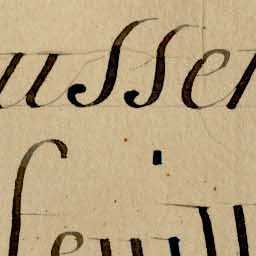 usser
seuill